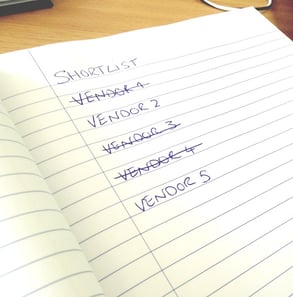 SHORTLIST
VENDOR 1
VENDOR 2
VENDOR 3
VENDOR 4
VENDOR 5